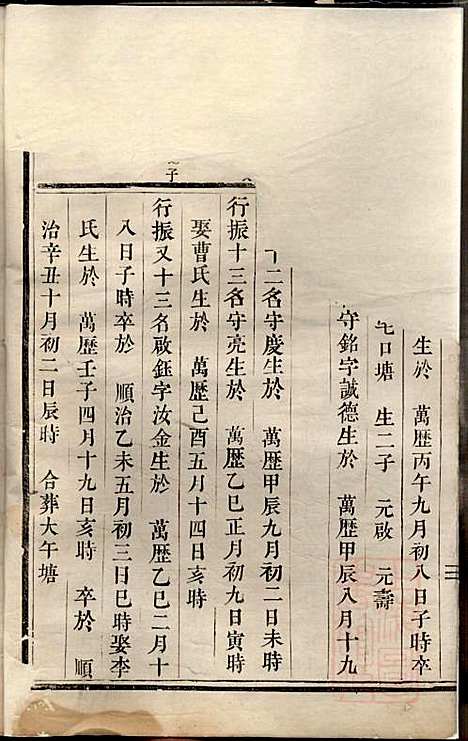 生於 萬歷丙午九月初八日子時卒
口塘 生二子 元啟 元壽
守銘字誠德生於 萬歷甲辰八月十九
二名守慶生於 萬歷甲辰九月初二日未時
行振十三名守亮生於 萬歷乙巳正月初九日寅時
娶曹氏生於 萬歷己酉五月十四日亥時
行振又十三名啟鈺字汝金生於 萬歷乙巳二月十
八日子時卒於 順治乙未五月初三日巳時娶李
氏生於 萬歷壬子四月十九日亥時 卒於 順
治辛丑十月初二日辰時 合葬大午塘
子